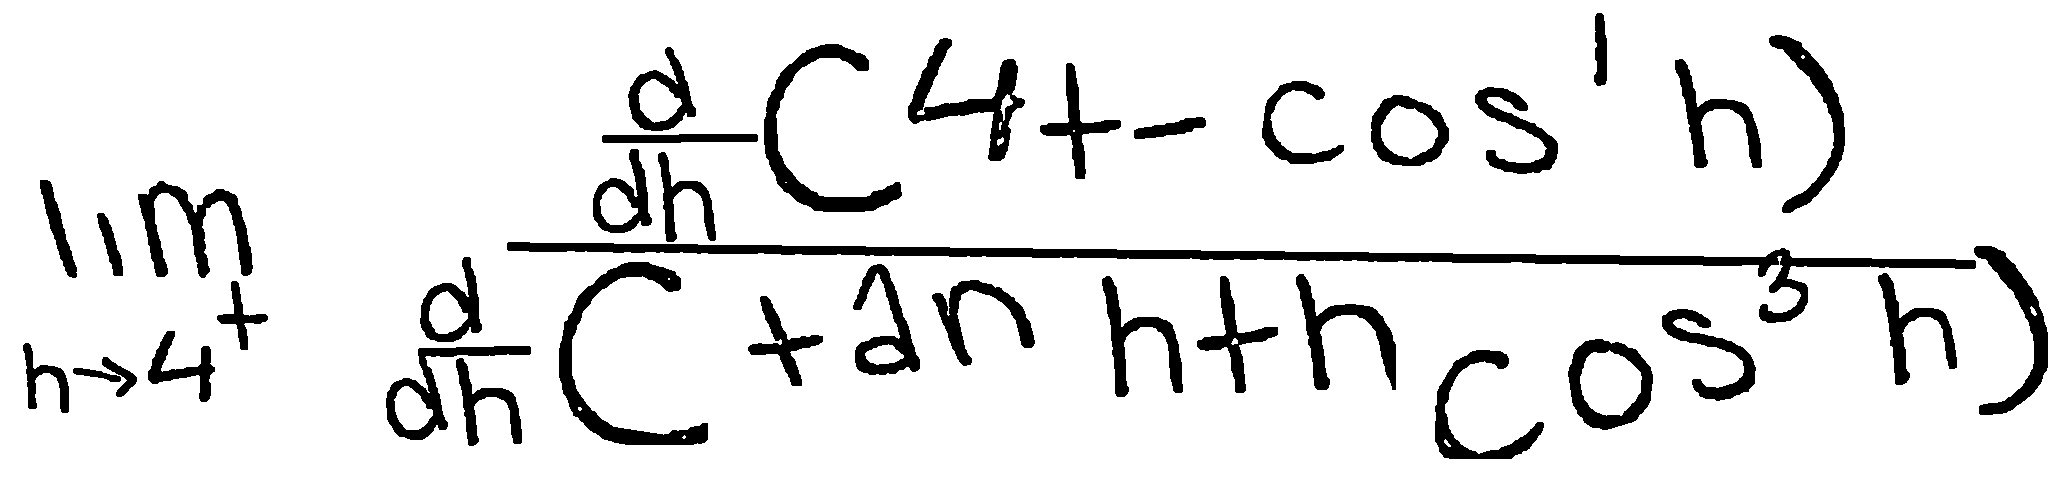 \lim_{h \to 4^+} \frac{\frac{d}{dh}(4 + - \cos^1 h)}{\frac{d}{dh}(\tan h + h \cos^3 h)}